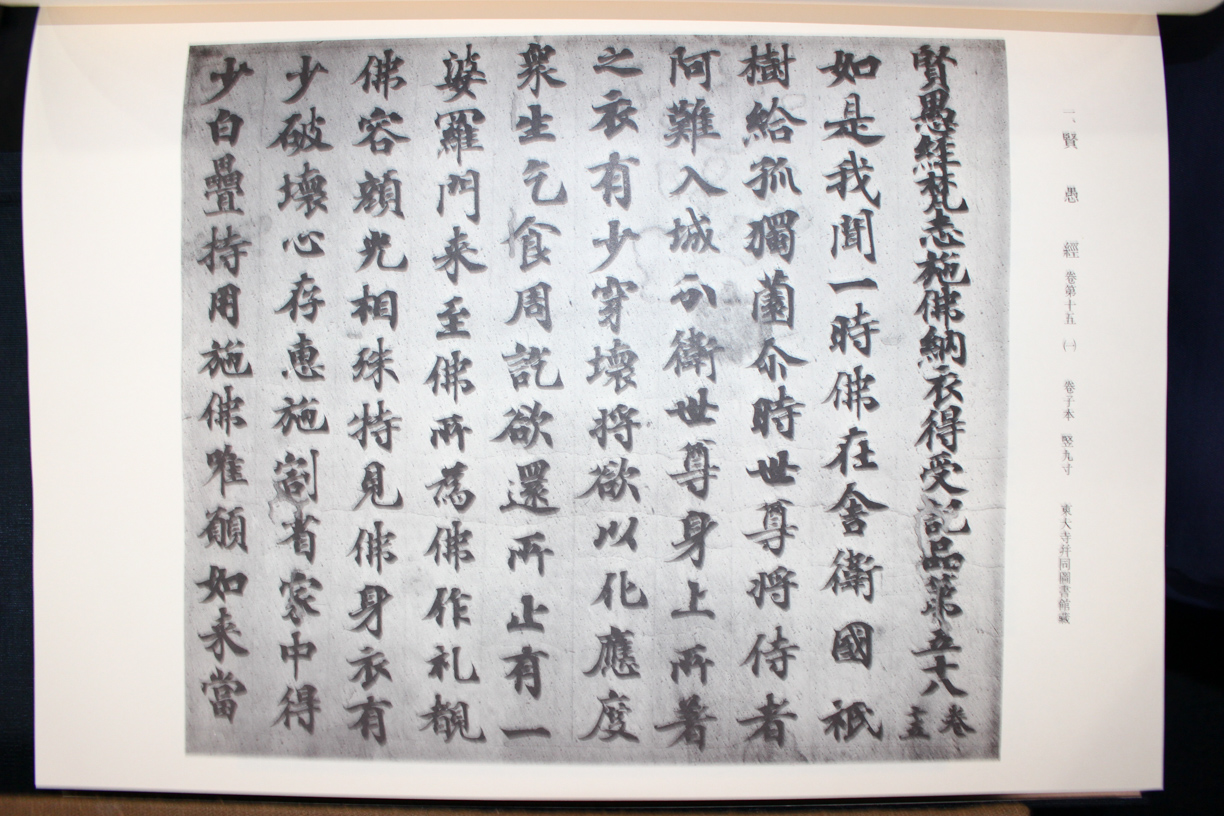 一、賢愚經 卷第十五 ㈠ 卷子本 竪九寸 東大寺幷同圖書館藏
賢愚經梵志施佛納衣得受記品第五十八 卷十五
如是我聞一時佛在舍衛國祇
樹給孤獨薗尒時世尊將侍者
阿難入城分衛世尊身上所著
之衣有少穿壞將欲以化應度
衆生乞食周訖欲還所止有一
婆羅門来至佛所爲佛作礼覩
佛容顔光相殊特見佛身衣有
少破壞心存惠施割省家中得
少白疊持用施佛唯願如来當